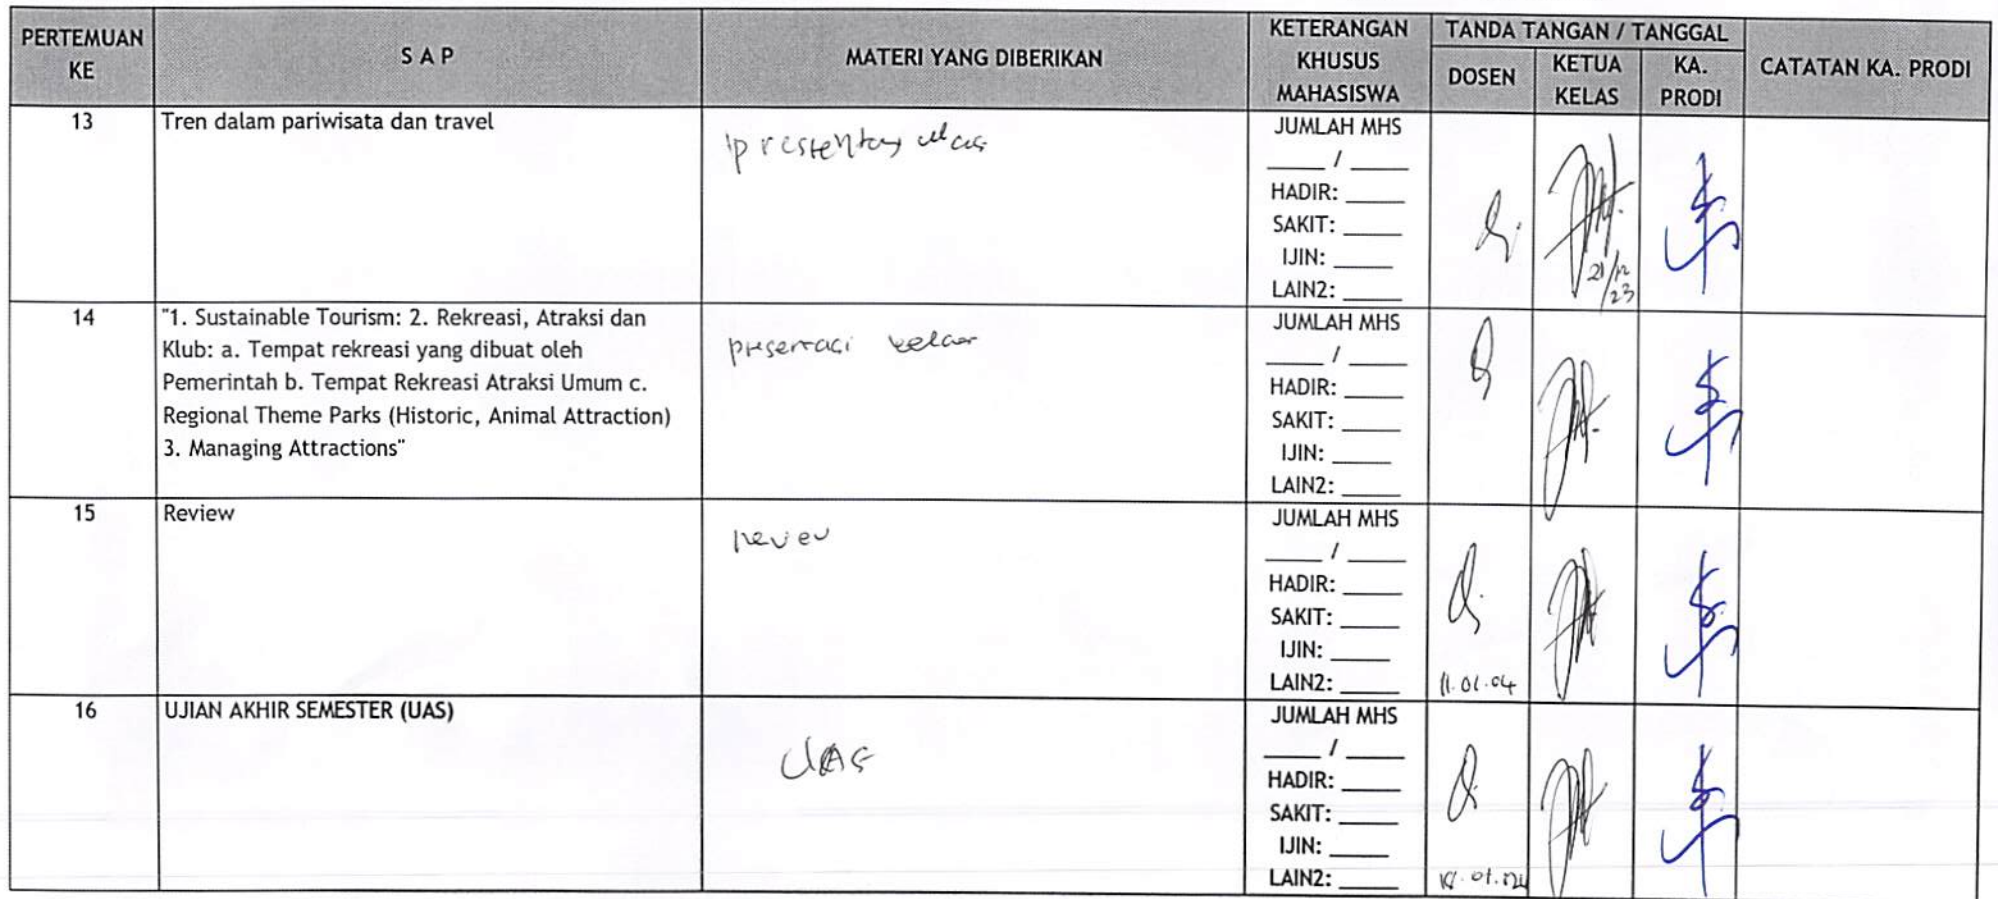 PERTEMUAN KE
S A P
MATERI YANG DIBERIKAN
KETERANGAN KHUSUS MAHASISWA
TANDA TANGAN / TANGGAL
DOSEN
KETUA KELAS
KA. PRODI
CATATAN KA. PRODI
13
Tren dalam pariwisata dan travel
JUMLAH MHS
____ / ____
HADIR: ____
SAKIT: ____
IJIN: ____
LAIN2: ____
21/12/23
14
"1. Sustainable Tourism: 2. Rekreasi, Atraksi dan
Klub: a. Tempat rekreasi yang dibuat oleh
Pemerintah b. Tempat Rekreasi Atraksi Umum c.
Regional Theme Parks (Historic, Animal Attraction)
3. Managing Attractions"
presentasi
JUMLAH MHS
____ / ____
HADIR: ____
SAKIT: ____
IJIN: ____
LAIN2: ____
15
Review
JUMLAH MHS
____ / ____
HADIR: ____
SAKIT: ____
IJIN: ____
LAIN2: ____
16
UJIAN AKHIR SEMESTER (UAS)
UAS
JUMLAH MHS
____ / ____
HADIR: ____
SAKIT: ____
IJIN: ____
LAIN2: ____